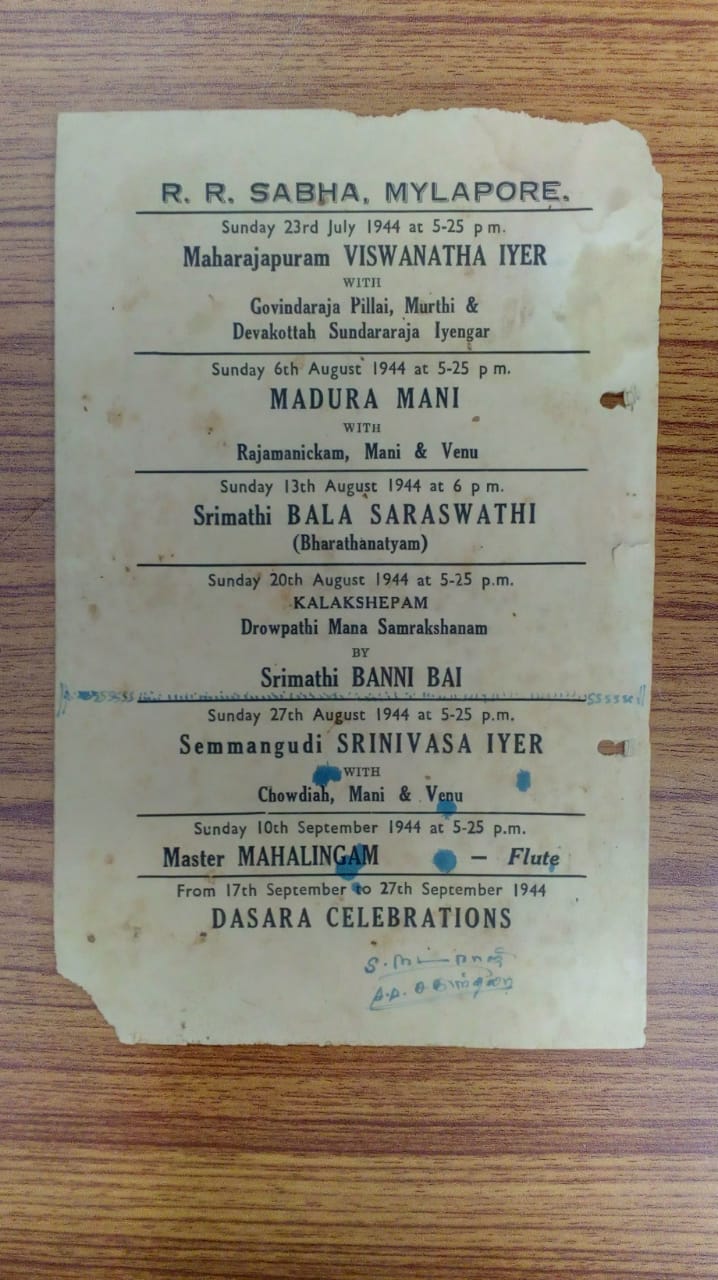 R. R. SABHA, MYLAPORE.
Sunday 23rd July 1944 at 5-25 p m.
Maharajapuram VISWANATHA IYER
WITH
Govindaraja Pillai, Murthi &
Devakottah Sundararaja Iyengar
Sunday 6th August 1944 at 5-25 p m.
MADURA MANI
WITH
Rajamanickam, Mani & Venu
Sunday 13th August 1944 at 6 p m.
Srimathi BALA SARASWATHI
(Bharathanatyam)
Sunday 20th August 1944 at 5-25 p.m.
KALAKSHEPAM
Drowpathi Mana Samrakshanam
BY
Srimathi BANNI BAI
Sunday 27th August 1944 at 5-25 p.m.
Semmangudi SRINIVASA IYER
WITH
Chowdiah, Mani & Venu
Sunday 10th September 1944 at 5-25 p.m.
Master MAHALINGAM — Flute
From 17th September to 27th September 1944
DASARA CELEBRATIONS